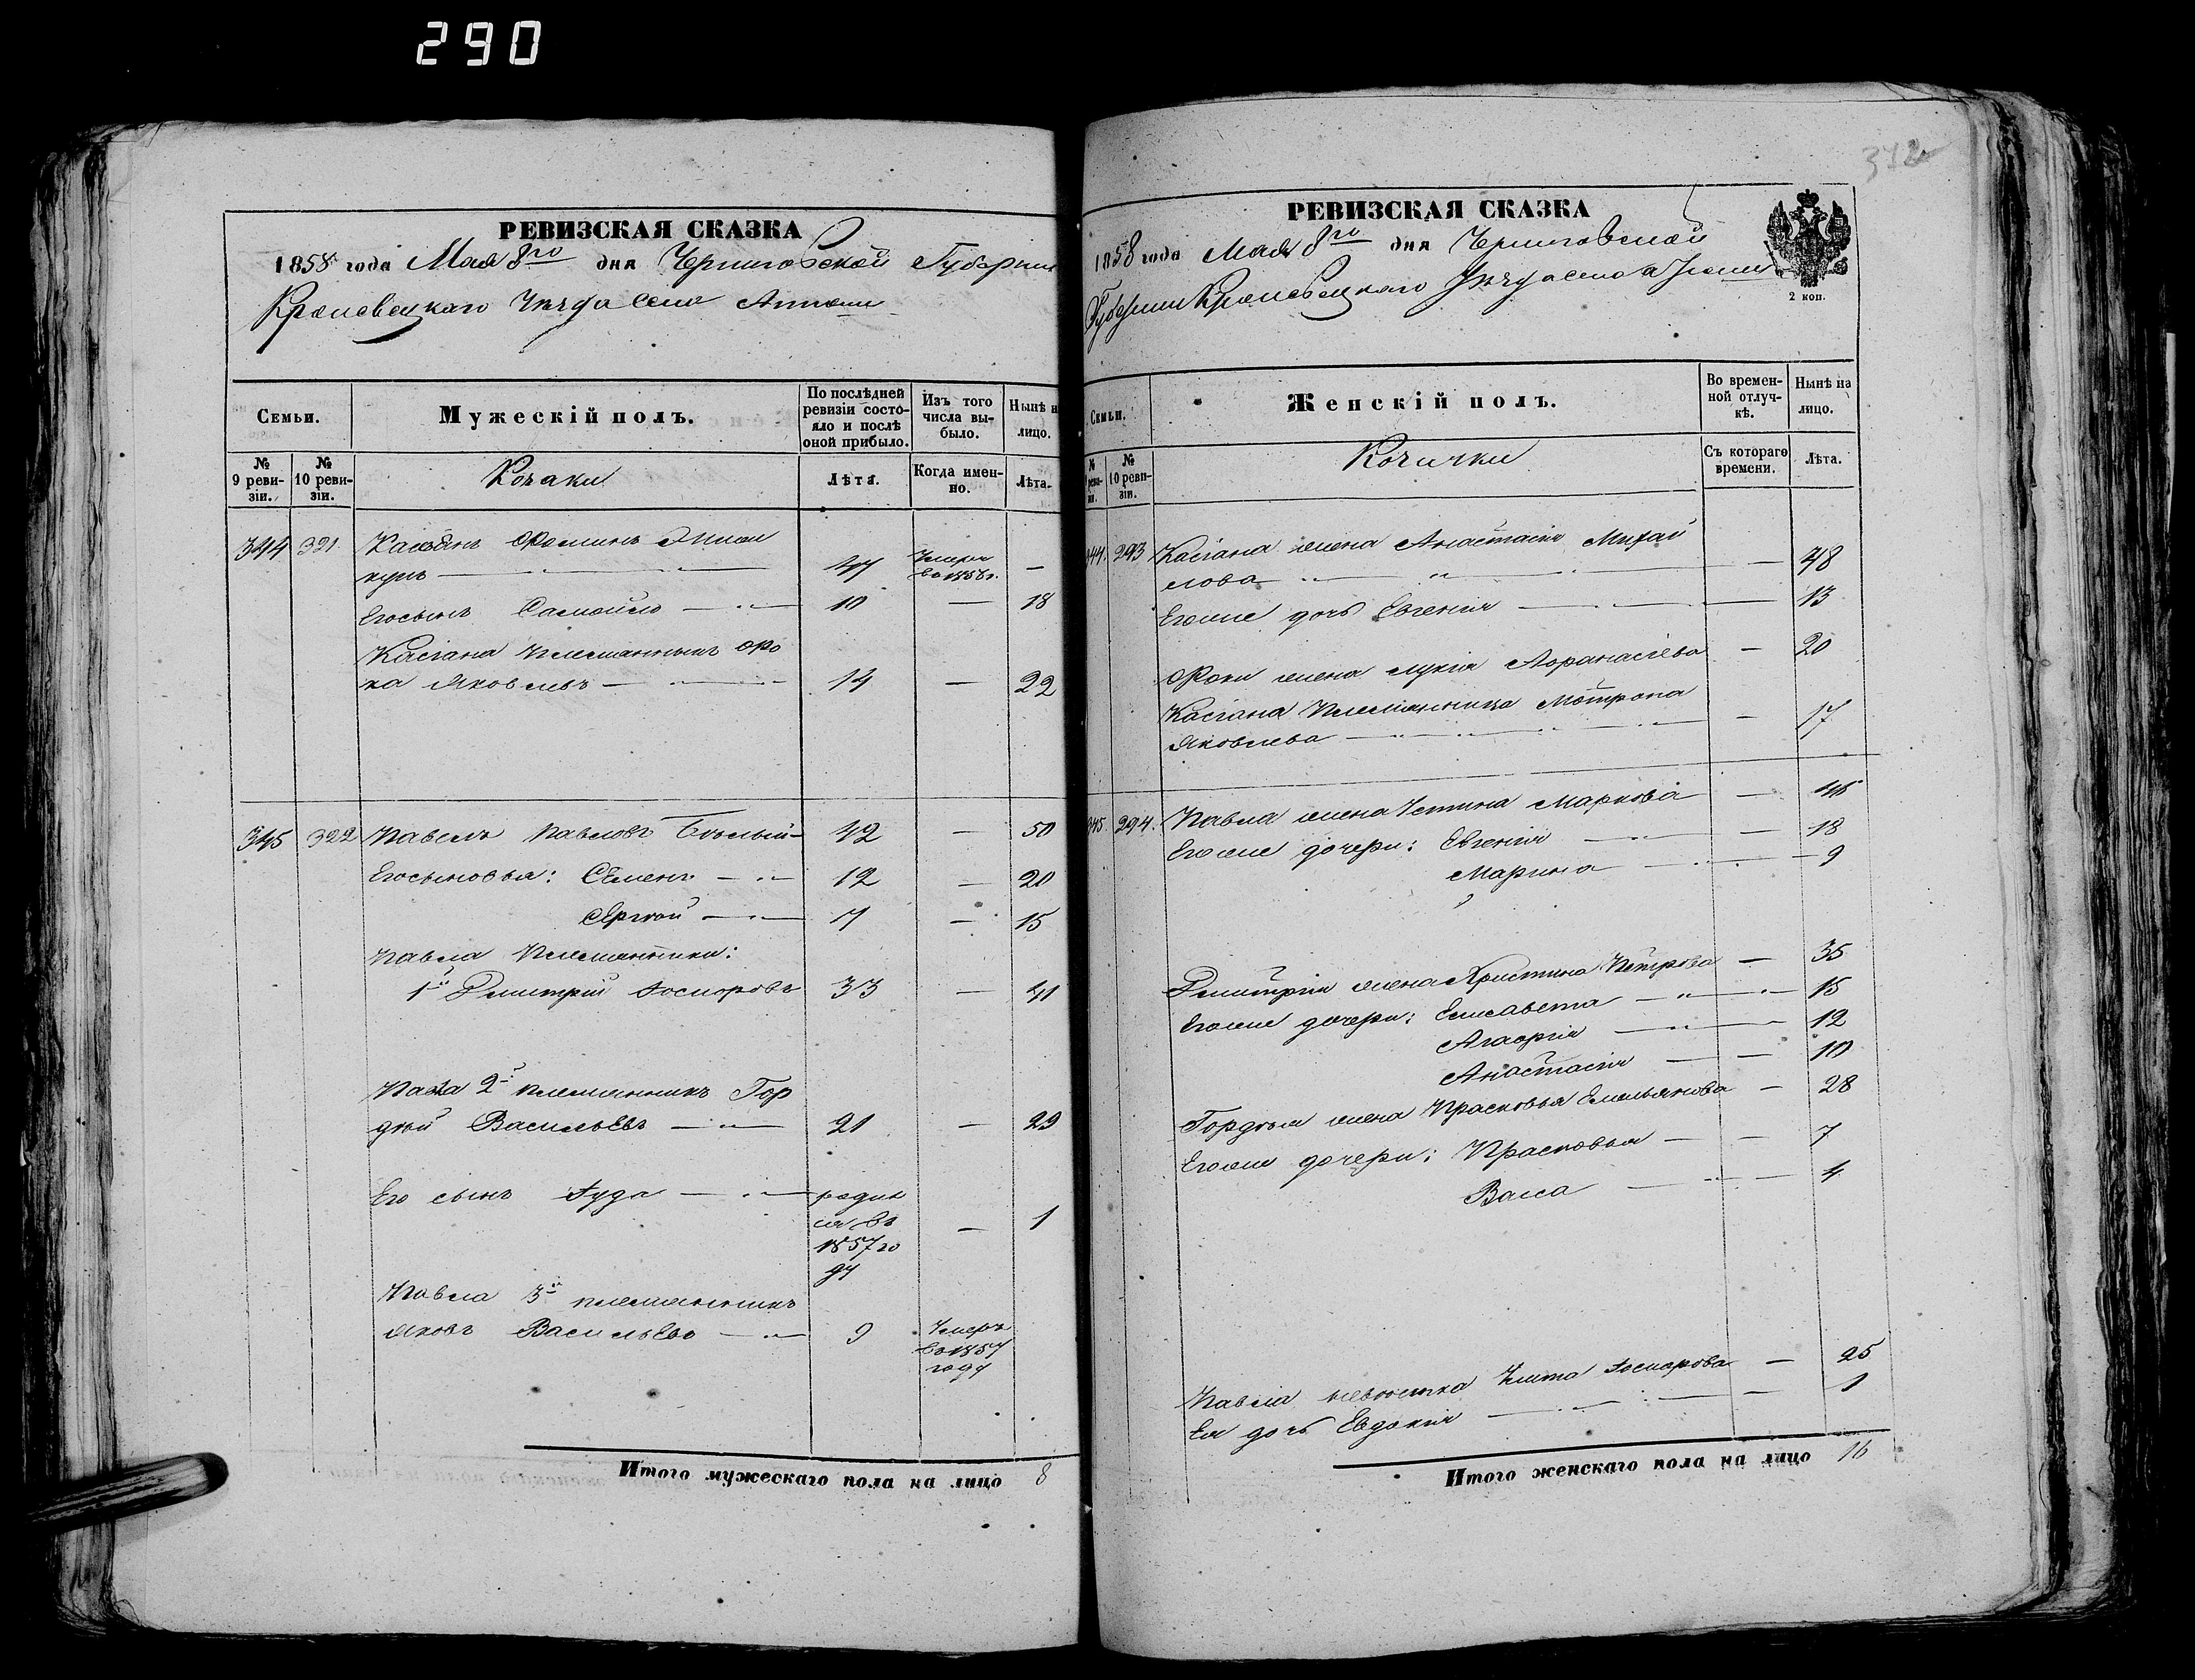 290
РЕВИЗСКАЯ СКАЗКА
1858 года Мая 8го дня Черниговской Губернии
Кролевецкаго Уѣзда села
Семьи.
Мужескій полъ.
По послѣдней ревизіи состояло и послѣ оной прибыло.
Изъ того числа выбыло.
Нынѣ н лицо.
№ 9 ревизіи.
№ 10 ревизіи.
Козаки
Лѣта.
Когда именно.
Лѣта.
344 321 Касьянъ Фоминъ
47 Умеръ въ 1858 г. —
Его сынъ Самойло — 10 — 18
Касіана племянникъ Фо
ка Яковлевъ — 14 — 22
345 322 Павелъ Павловъ Бѣлый — 42 — 50
Его сыновья: Семенъ — 12 — 20
Сергѣй — 7 — 15
Павла племянники:
1й Дмитрій Іосифовъ 33 — 41
Павла 2й племянникъ Гор
дѣй Васильевъ — 21 — 29
Его сынъ Іуда — родил
ся въ
1857 го
ду — 1
Павла 3й племянникъ
Яковъ Васильевъ — 9 Умеръ
въ 1857
году
Итого мужескаго пола на лицо 8
342
РЕВИЗСКАЯ СКАЗКА
1858 года Мая 8го дня Черниговской
Губерніи Кролевецкаго Уѣзда села
2 коп.
Семьи.
Женскій полъ.
Во временной отлучкѣ.
Нынѣ на лицо.
№ 10 ревизіи.
Козачки
Съ котораго времени.
Лѣта.
344. 293 Касіана жена Анастасія Михай
лова — 48
Его же дочь Евгенія — 13
Фоки жена Лукія Афанасіева — 20
Касіана племянница Мотрона
Яковлева — 17
345. 294. Павла жена Устина Маркова — 46
Его же дочери: Евгенія — 18
Марина — 9
Дмитрія жена Христина Петрова — 35
Его же дочери: Елисавета — 15
Агафія — 12
Анастасія — 10
Гордѣя жена Прасковья Емельянова — 28
Его же дочери: Прасковья — 7
Васса — 4
Павла невѣстка Улита Іосифова — 25
Ея дочь Евдокія — 1
Итого женскаго пола на лицо 16